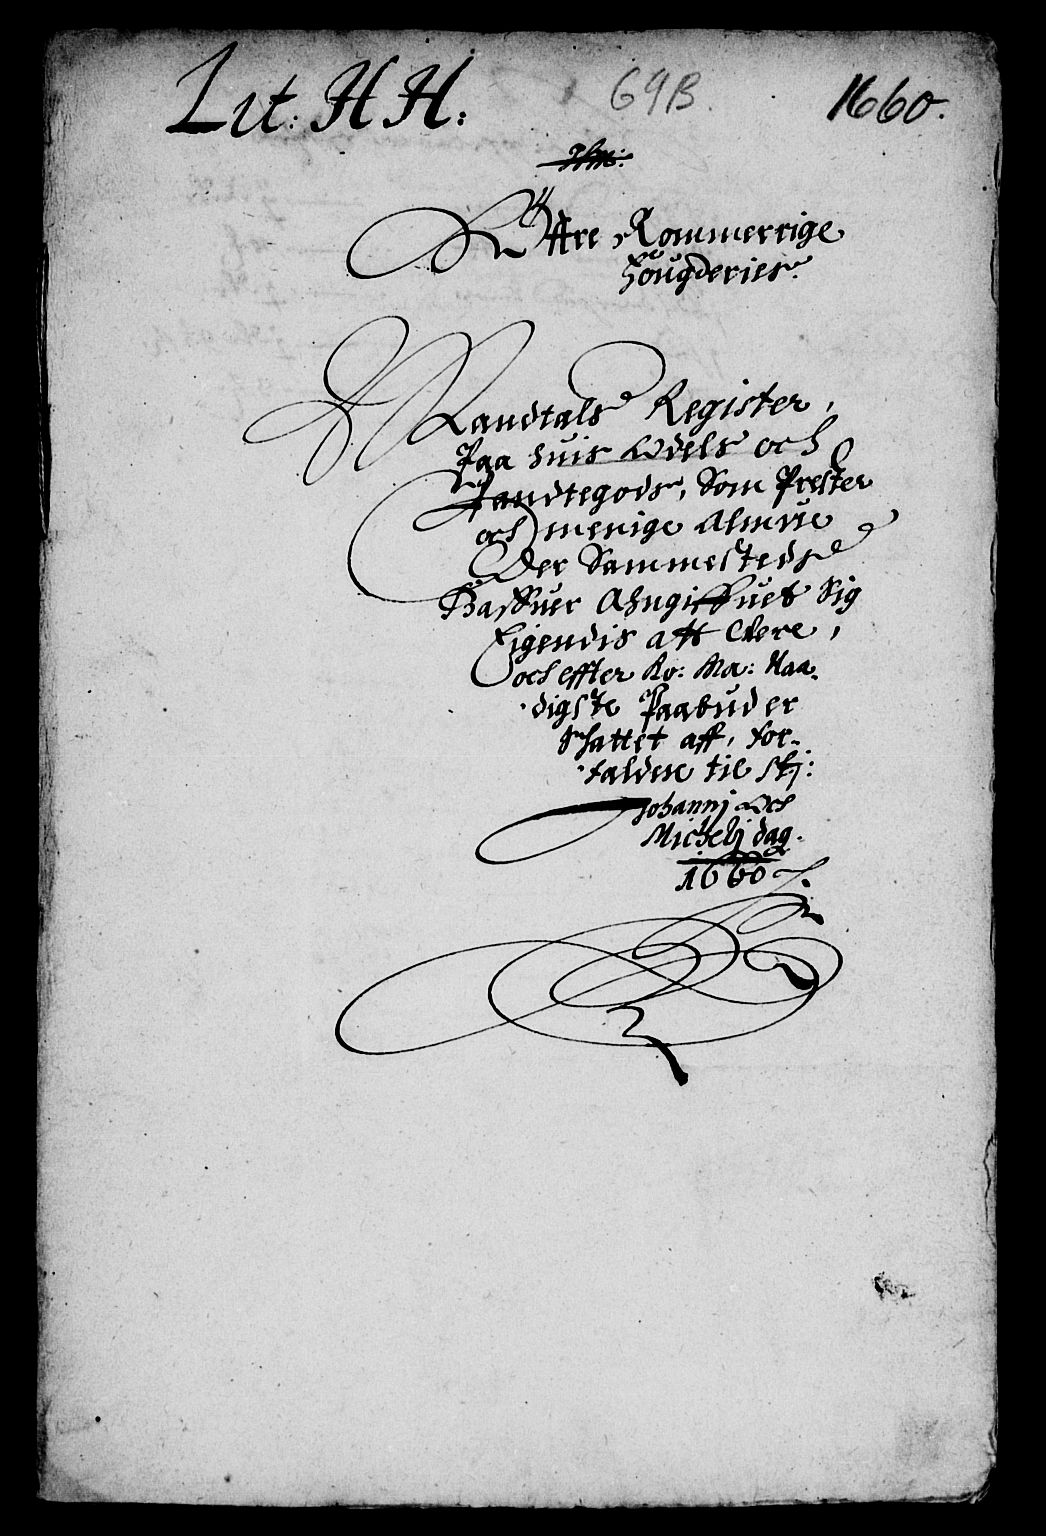 Lit: HH: 69B. 1660.
Øffre Rommerrige
Fougderies.
Mandtals Register,
Paa huis Odels och
Jandtegods, Som Prester
och menige Almue
Der Sammesteds
Haffuer Ahngiffuet Sig
Eigendis att Were,
och effter Ko: Ma: Naa-
digste Paabud er
Schattet aff, for-
falden til St:
Johannj och
Michelj dag.
1660